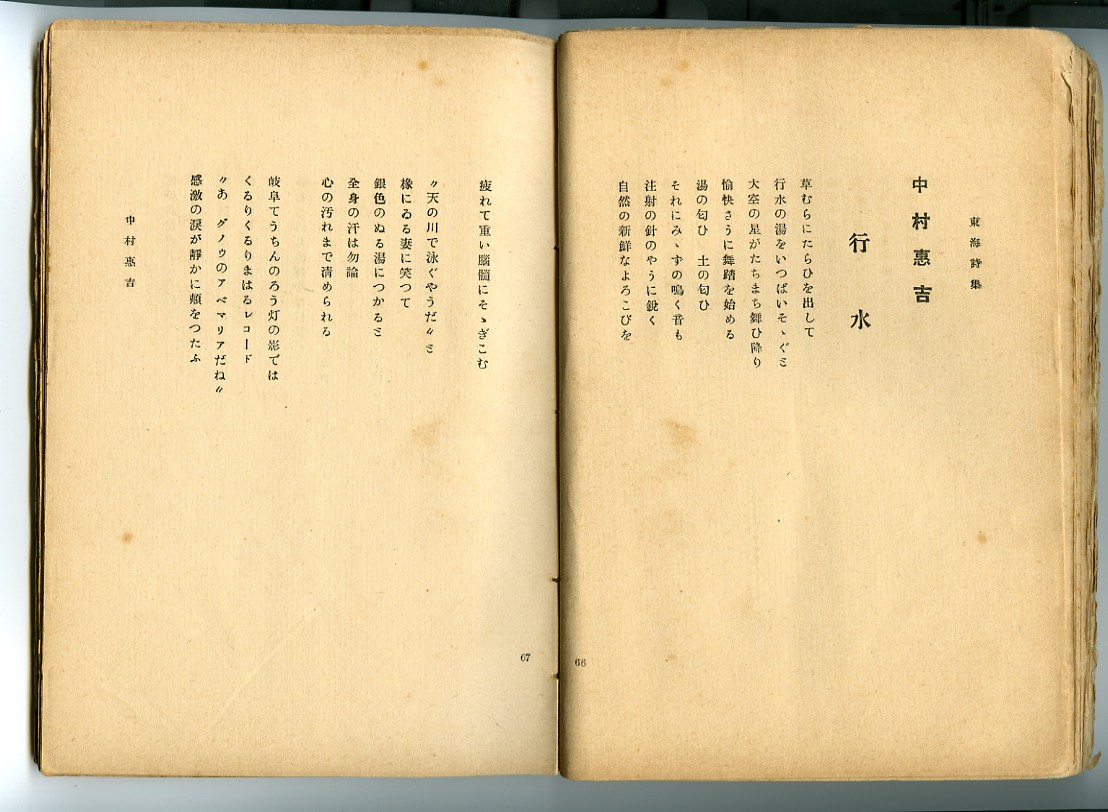 東海詩集
中村惠吉
行水
草むらにたらひを出して
行水の湯をいつぱいそゝぐと
大空の星がたちまち舞ひ降り
愉快さうに舞踏を始める
湯の匂ひ　土の匂ひ
それにみゝずの鳴く音も
注射の針のやうに鋭く
自然の新鮮なよろこびを
66
疲れて重い腦髓にそゝぎこむ
〃天の川で泳ぐやうだ〃と
椽にゐる妻に笑つて
銀色のぬる湯につかると
全身の汗は勿論
心の汚れまで清められる
岐阜てうちんのろう灯の影では
くるりくるりまはるレコード
〃あ　グノウのアベマリアだね〃
感激の涙が靜かに頬をつたふ
中村惠吉
67